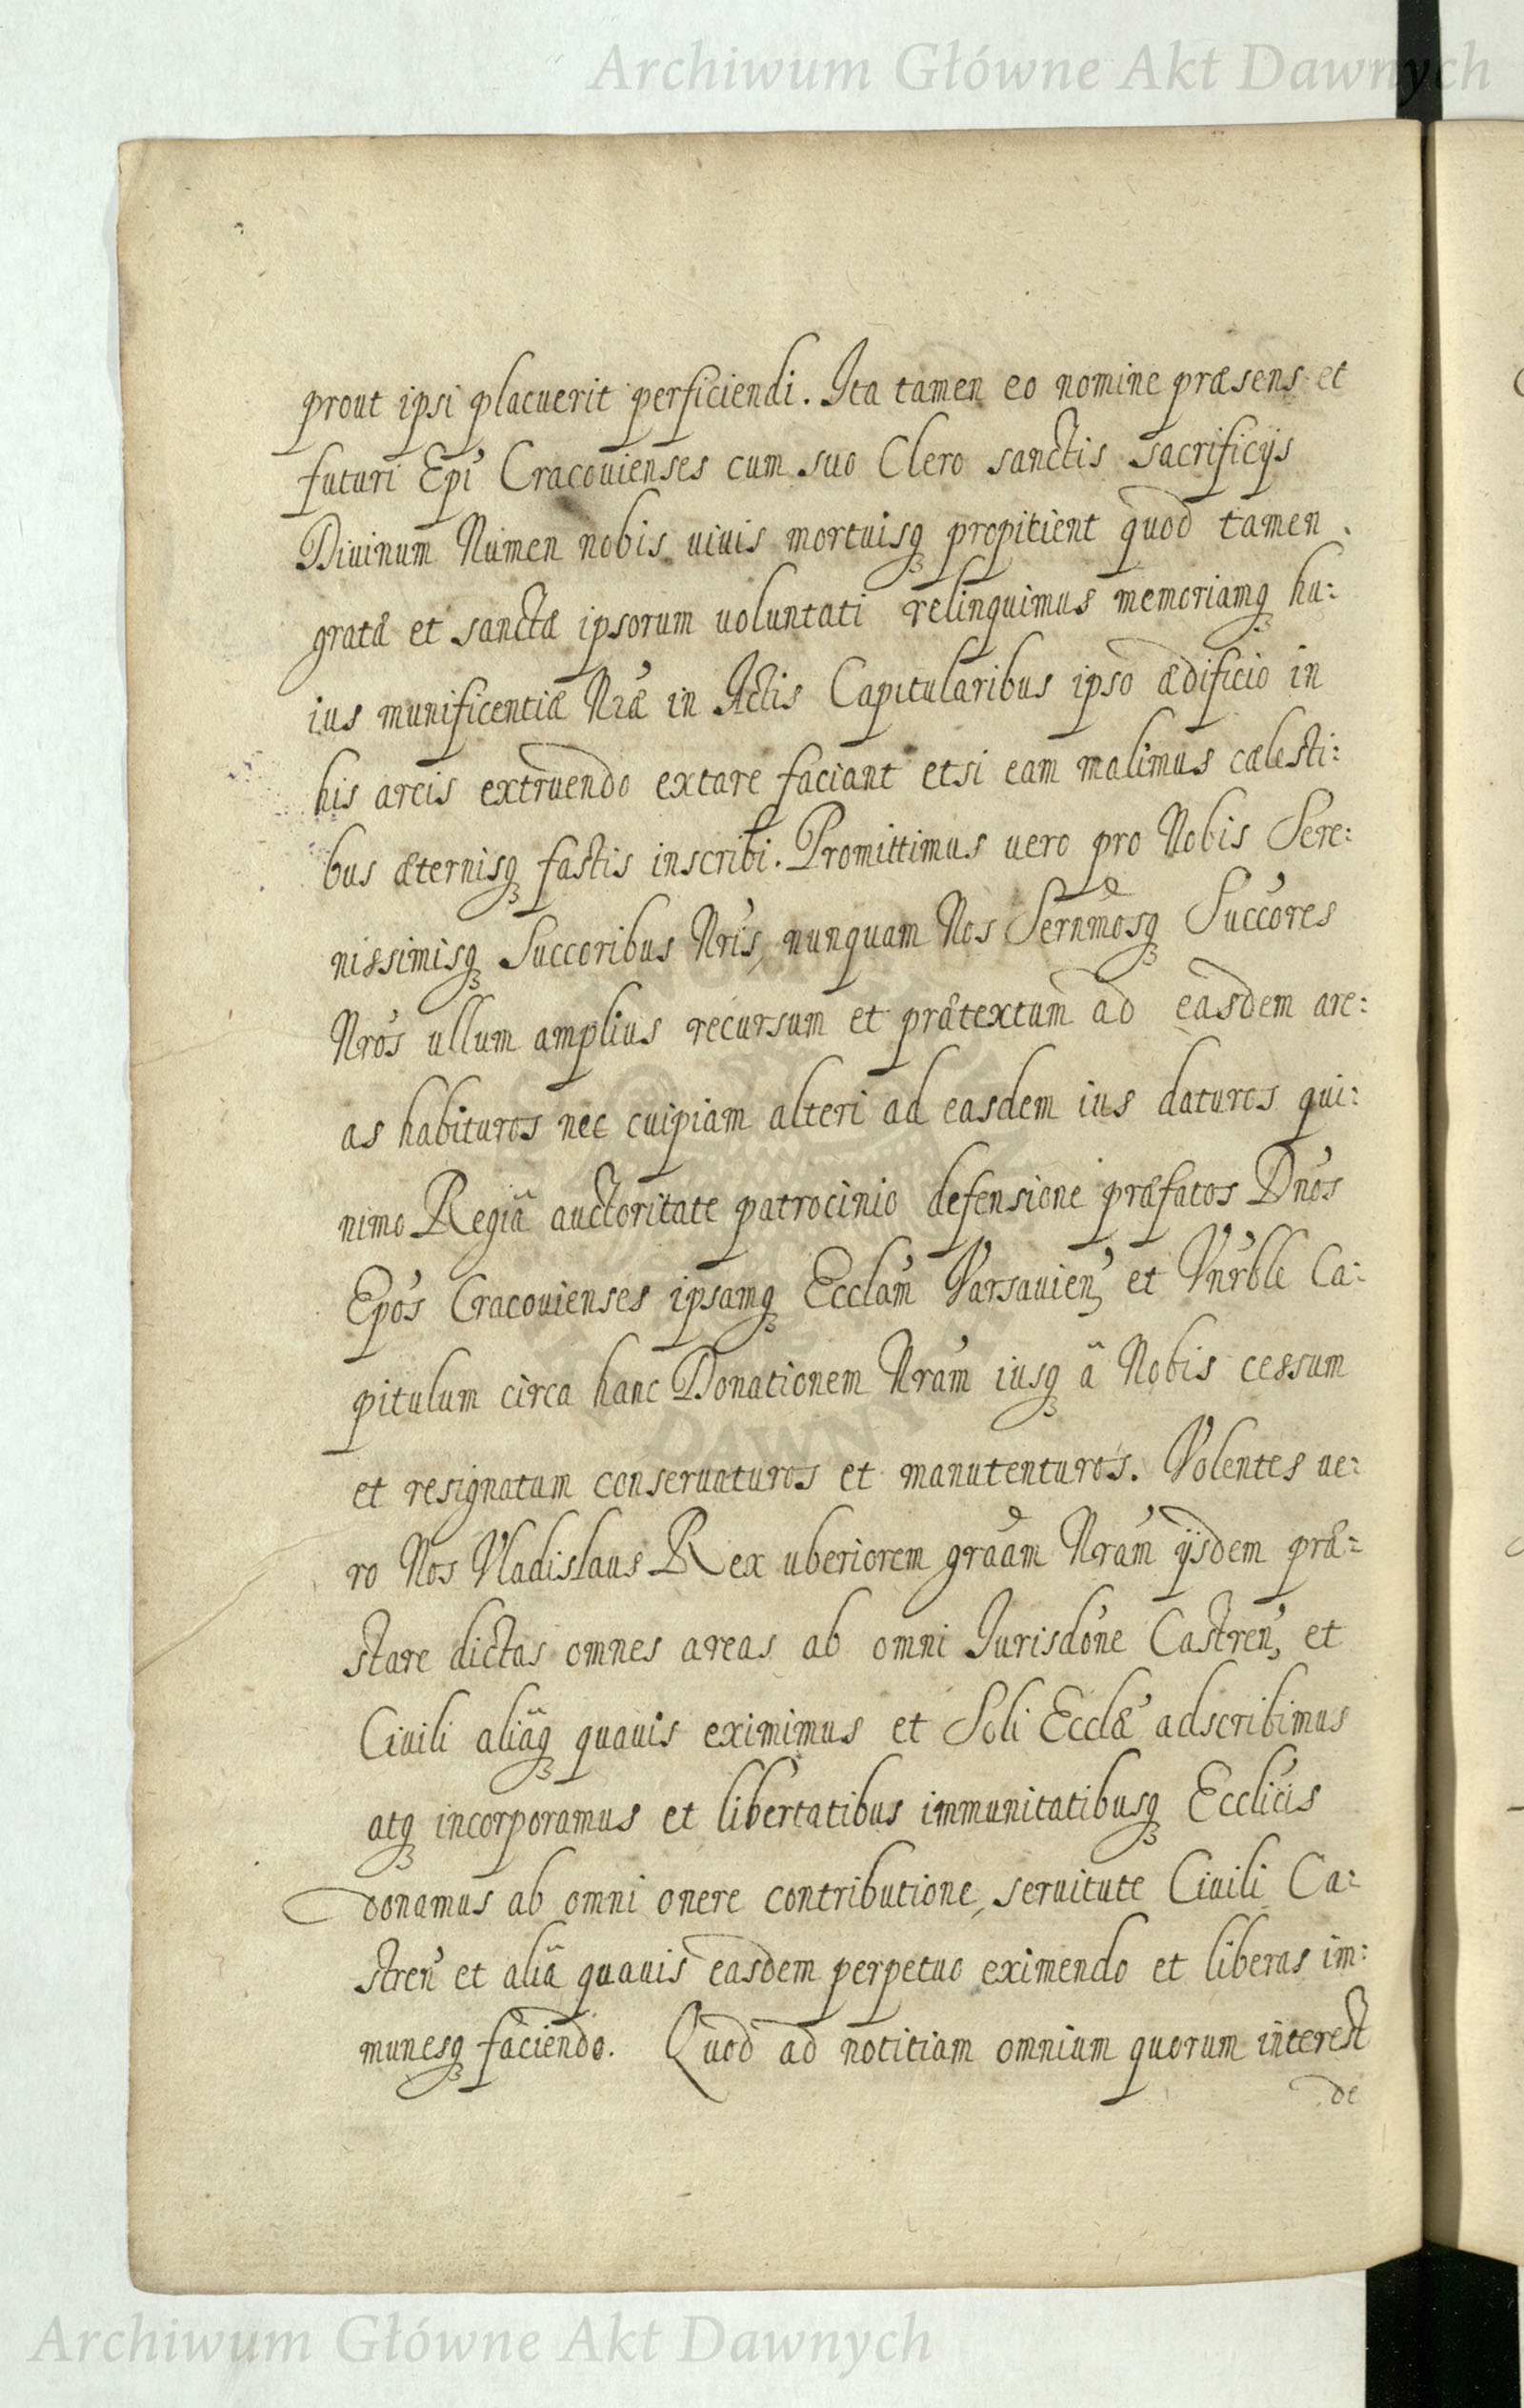 Archiwum Główne Akt Dawnych
prout ipsi placuerit perficiendi. Ita tamen eo nomine præsens et
futuri Epi' Cracouienses cum suo Clero sanctis sacrificijs
Diuinum Numen nobis uiuis mortuisq; propitient quod tamen
gratæ et sanctæ ipsorum uoluntati relinquimus memoriamq; hu:
ius munificentiæ Nræ in Actis Capitularibus ipso ædificio in
his areis extruendo extare faciant etsi eam malimus cælesti:
bus æternisq; fastis inscribi. Promittimus uero pro Nobis Sere:
nissimisq; Succoribus Nris, nunquam Nos Sernmosq; Succores
Nros ullum amplius recursum et prætextum ad easdem are:
as habituros nec cuipiam alteri ad easdem ius daturos qui:
nimo Regiâ auctoritate patrocinio defensione præfatos Dnos
Epos Cracouienses ipsamq; Ecclam Varsauien, et Vnrble Ca:
pitulum circa hanc Donationem Nram iusq; â Nobis cessum
et resignatum conseruaturos et manutenturos. Volentes ue:
ro Nos Vladislaus Rex uberiorem graam Nram ijsdem præ:
stare dictas omnes areas ab omni Jurisdone Castren, et
Ciuili aliâq; quauis eximimus et Soli Ecclæ adscribimus
atq; incorporamus et libertatibus immunitatibusq; Ecclicis
donamus ab omni onere contributione, seruitute Ciuili Ca:
stren et aliâ quauis easdem perpetuo eximendo et liberas im:
munesq; faciendo. Quod ad notitiam omnium quorum interest
de
Archiwum Główne Akt Dawnych